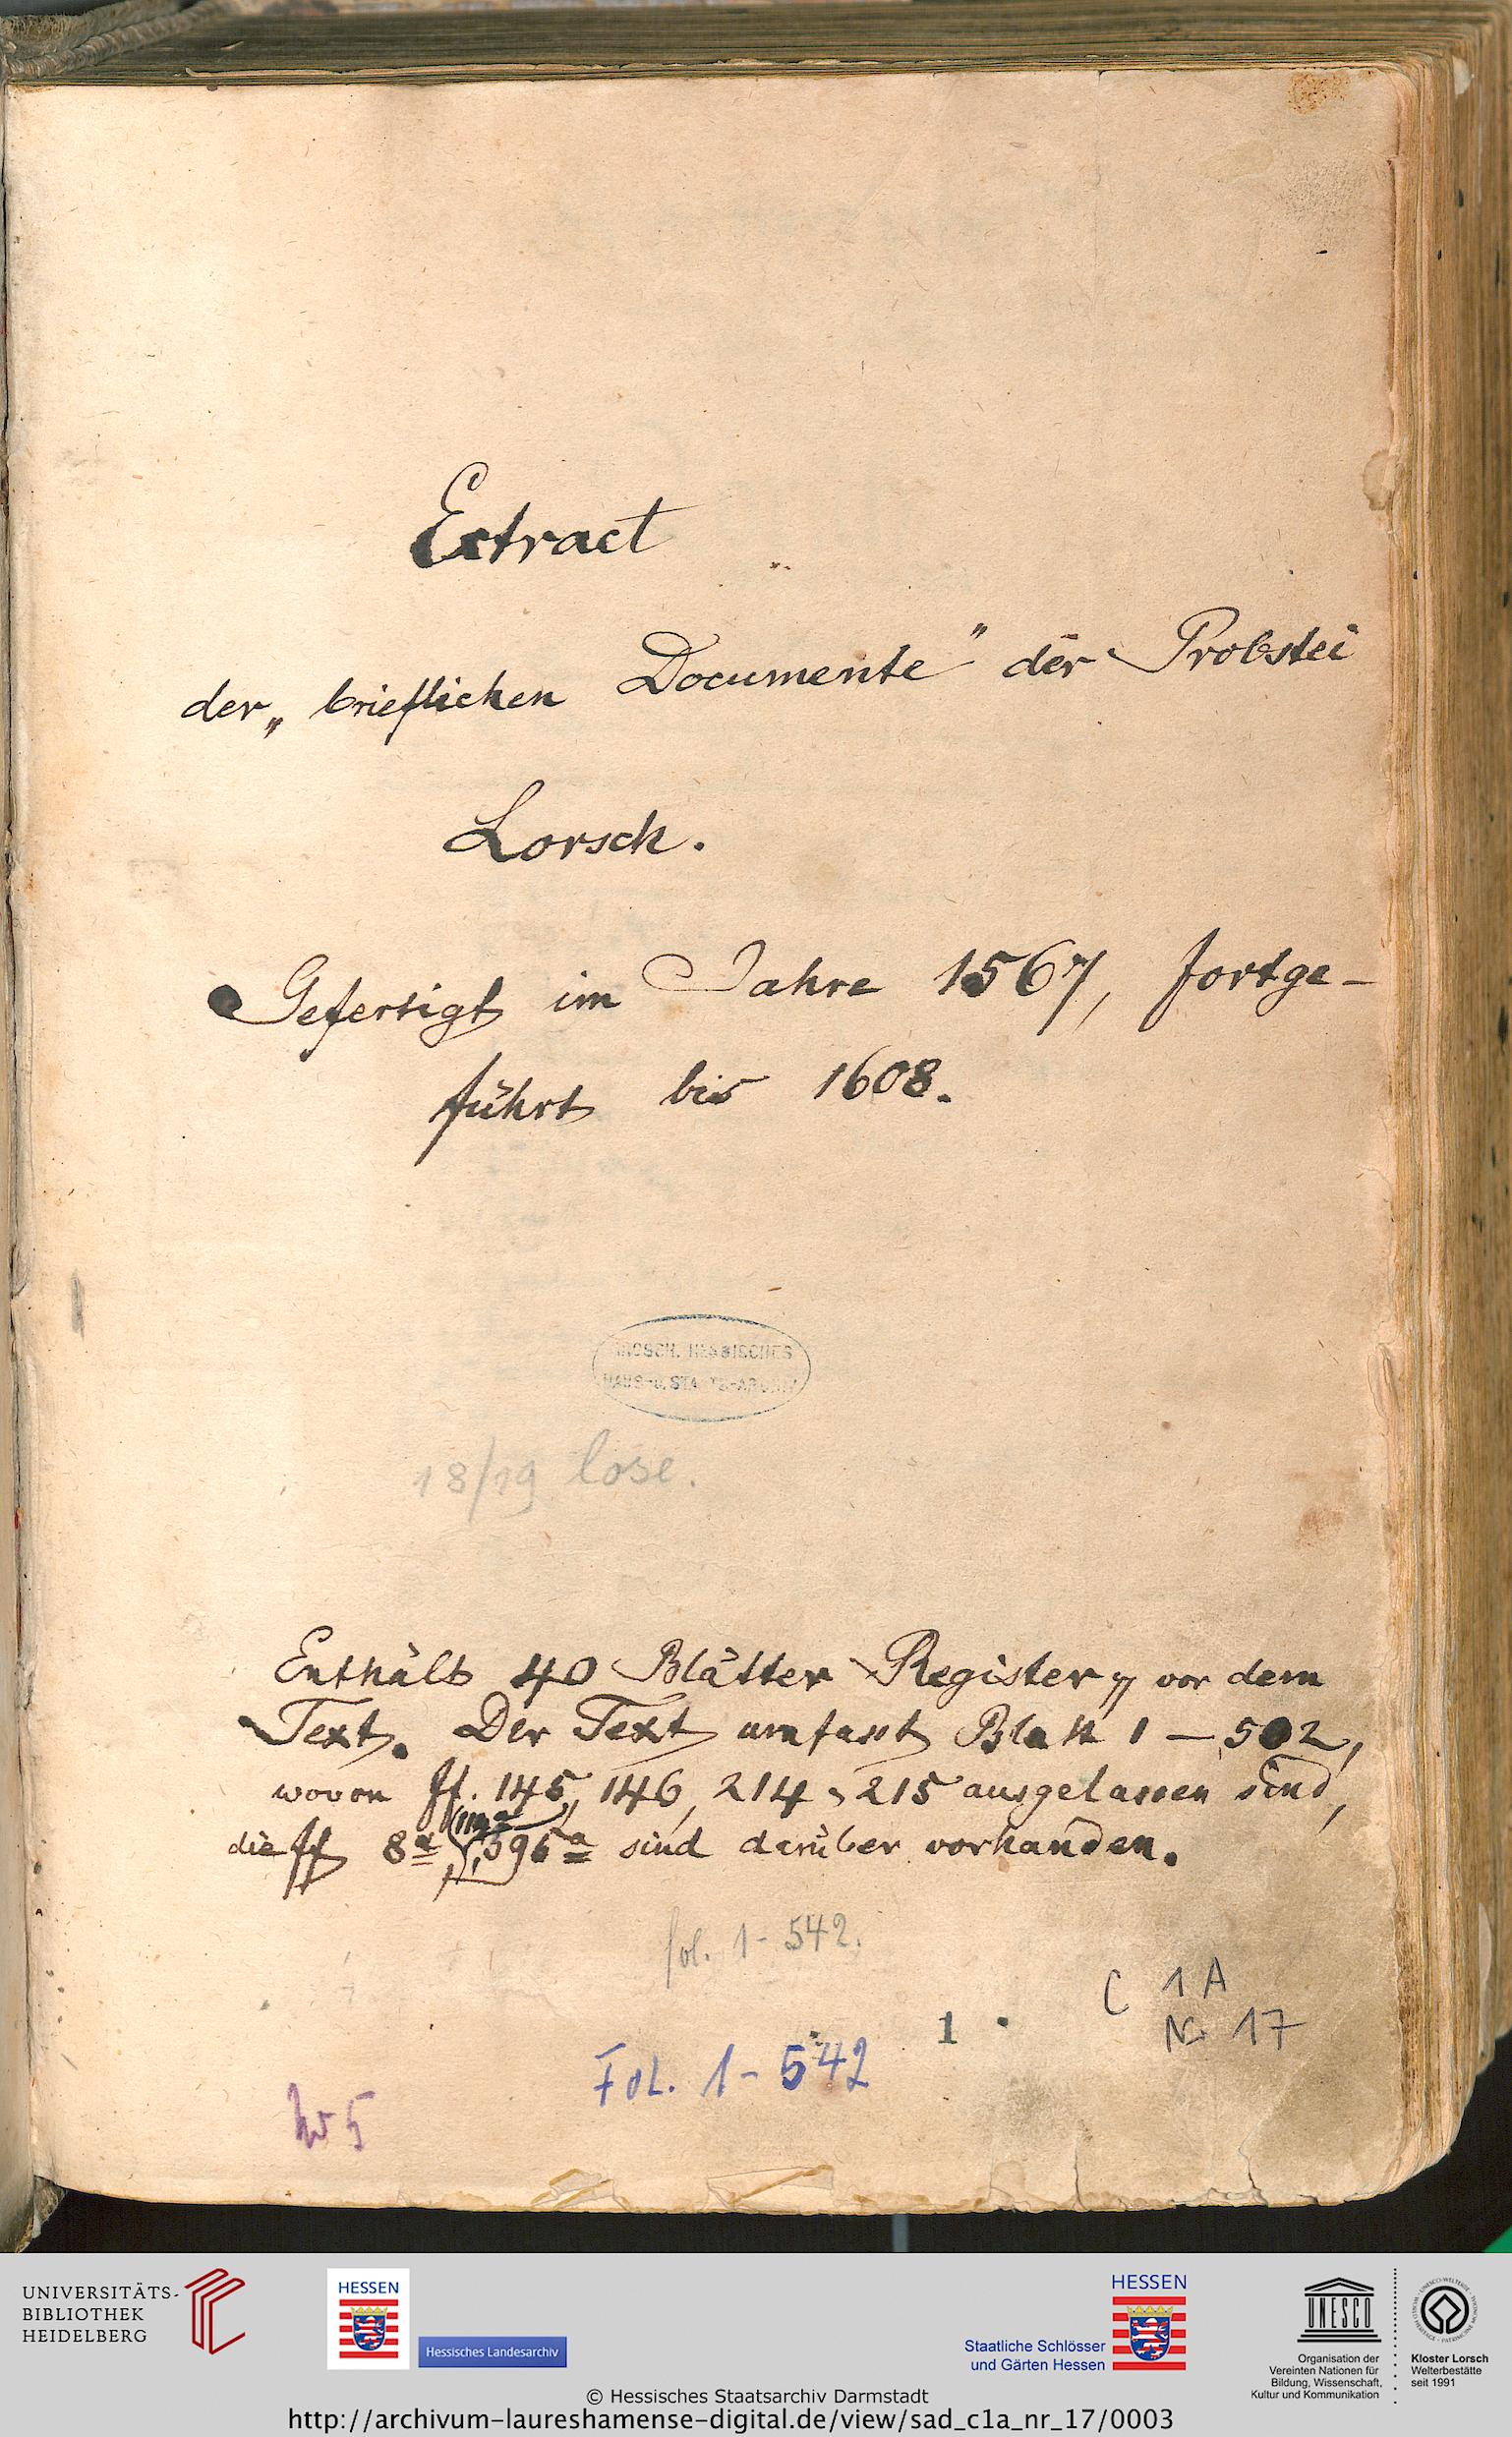 Extract
der „brieflichen Documente" der Probstei
Lorsch.
Gefertigt im Jahre 1567, fortge-
führt bis 1608.
GROSSH. HESSISCHES
HAUS-U. STAATS-ARCHIV
18/19 lose.
Enthält 40 Blätter Register vor dem
Text. Der Text umfasst Blatt 1 — 502,
wovon ff. 145, 146, 214, 215 ausgelassen sind,
die ff 8a 396a sind darüber vorhanden.
fol. 1 - 542.
C 1 A
Nr 17
1
Fol. 1 - 542
UNIVERSITÄTS-
BIBLIOTHEK
HEIDELBERG
HESSEN
Hessisches Landesarchiv
HESSEN
Staatliche Schlösser
und Gärten Hessen
UNESCO
Organisation der
Vereinten Nationen für
Bildung, Wissenschaft,
Kultur und Kommunikation
Kloster Lorsch
Welterbestätte
seit 1991
© Hessisches Staatsarchiv Darmstadt
http://archivum-laureshamense-digital.de/view/sad_c1a_nr_17/0003